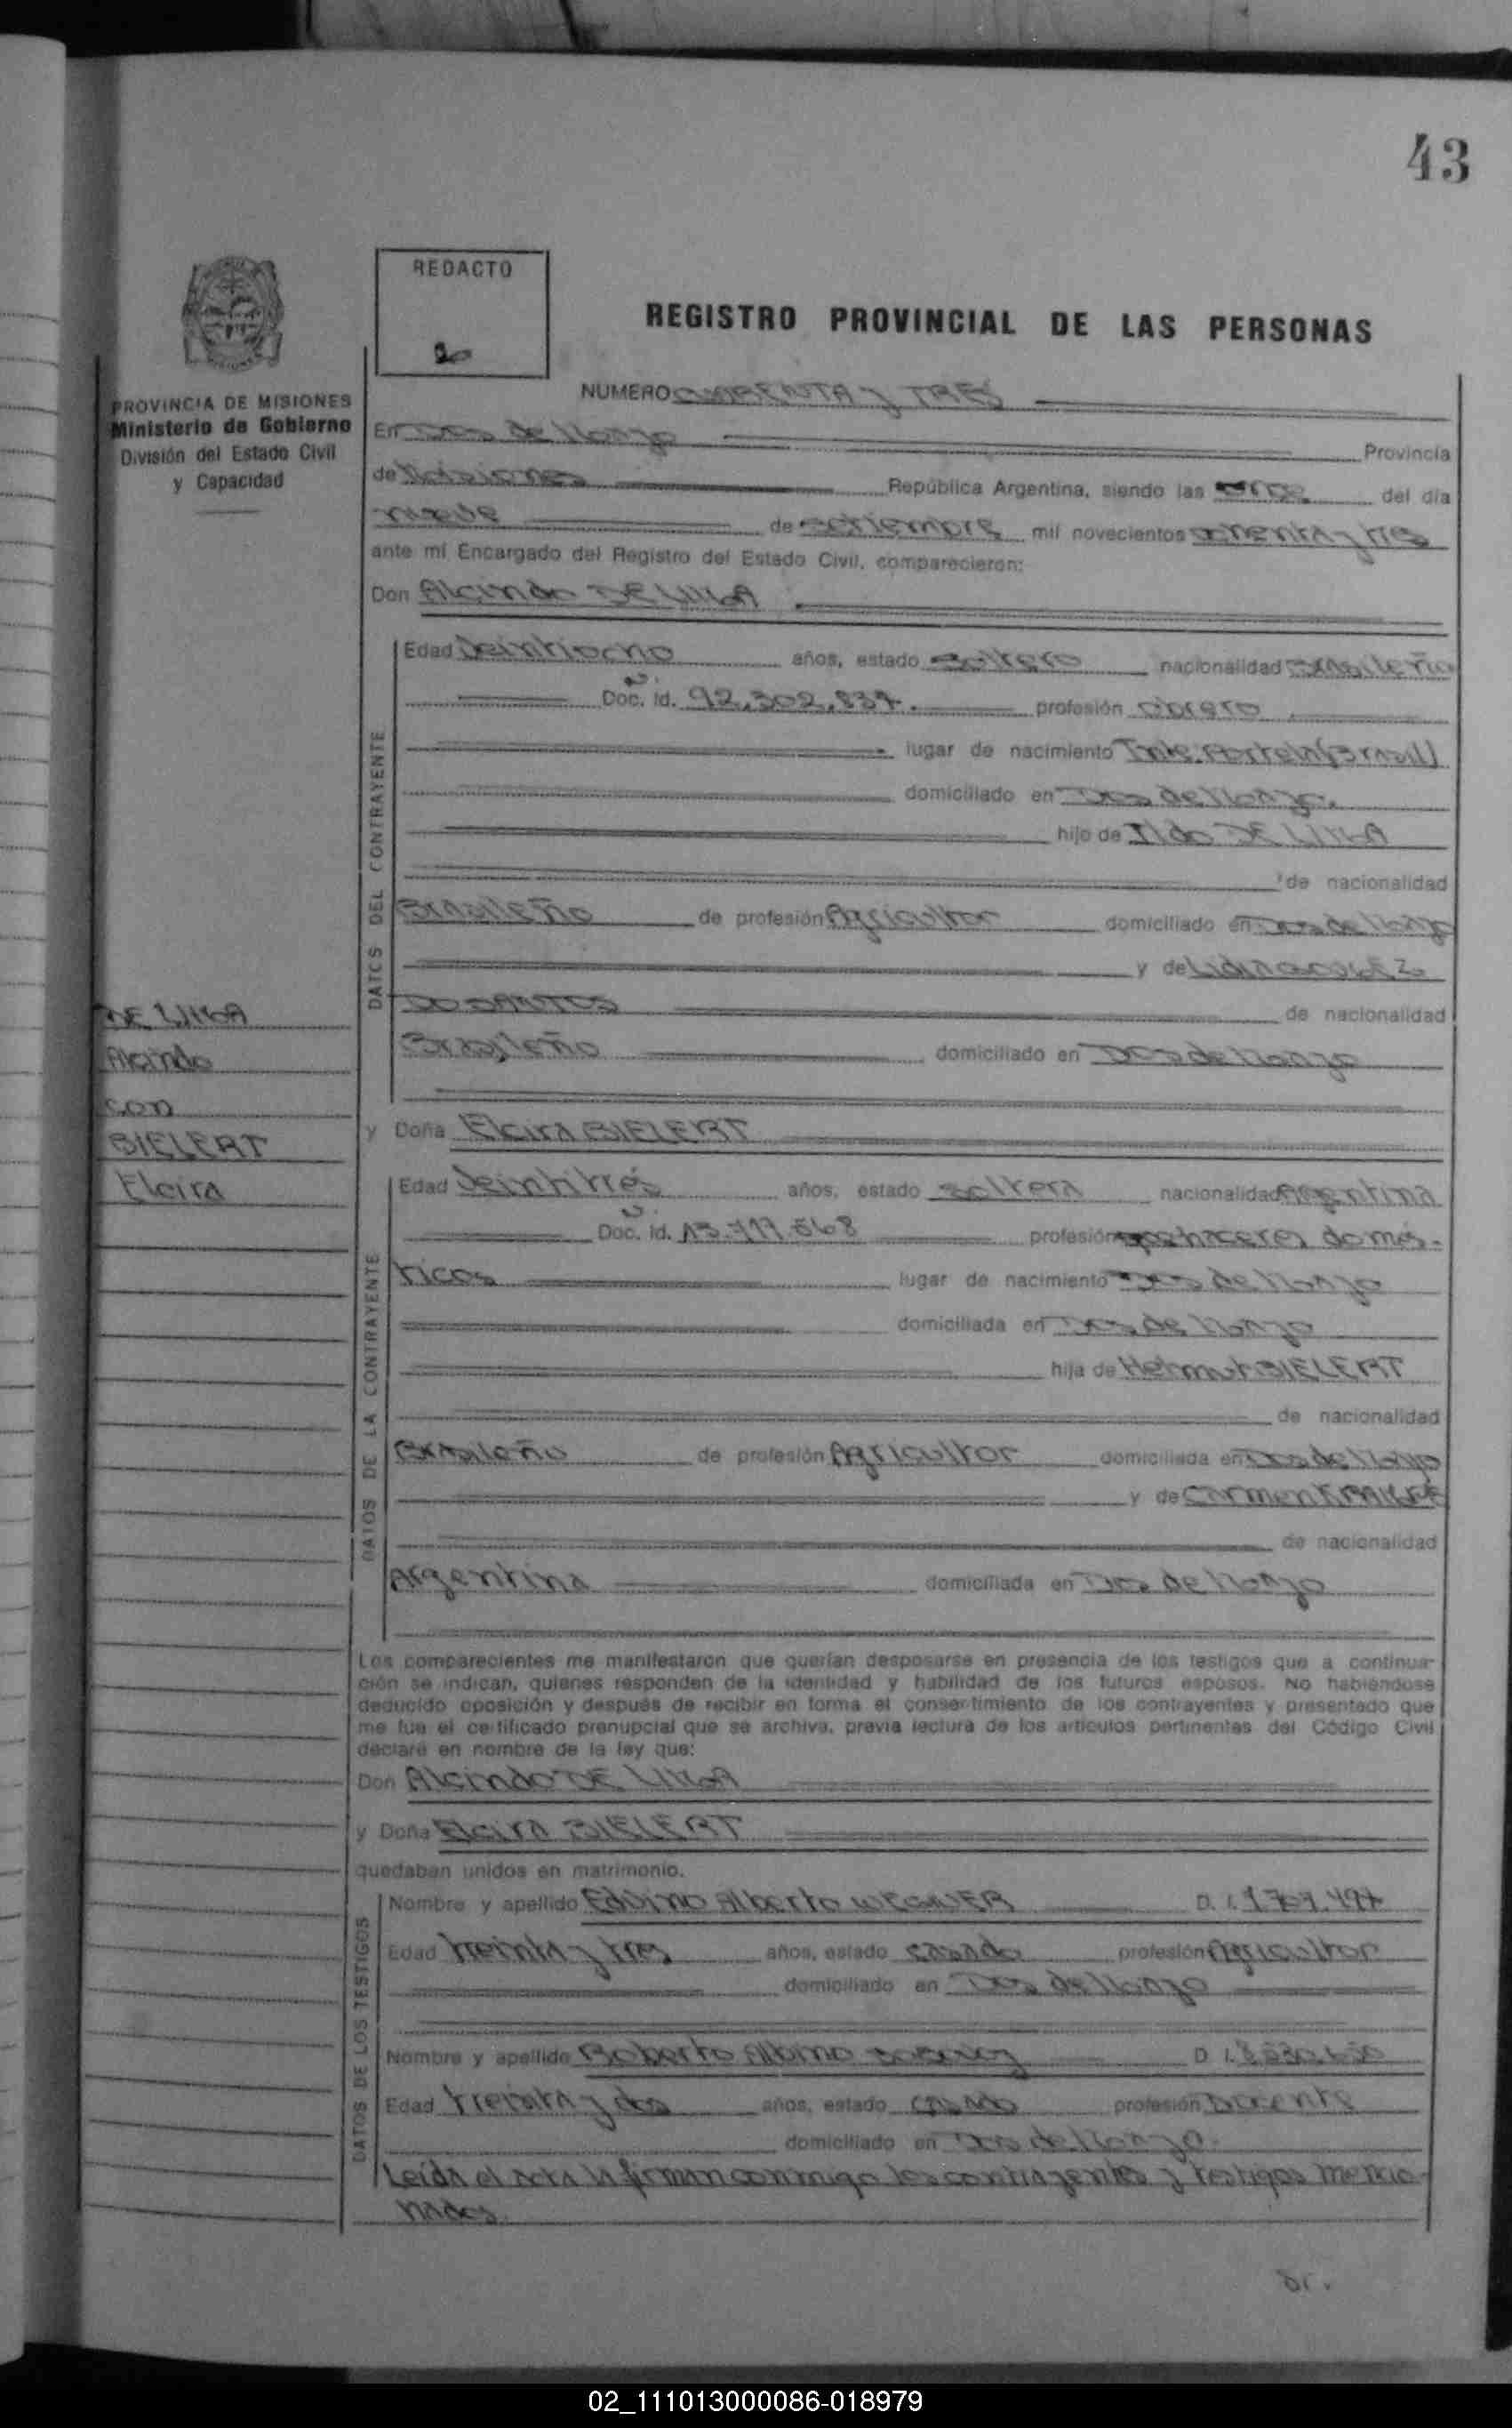 43
REDACTO
REGISTRO PROVINCIAL DE LAS PERSONAS
PROVINCIA DE MISIONES
Ministerio de Gobierno
División del Estado Civil
y Capacidad
NUMERO CUARENTA y TRES
En Dos de Mayo Provincia
de Misiones República Argentina, siendo las once del día
nueve de setiembre mil novecientos ochenta y tres
ante mí Encargado del Registro del Estado Civil, comparecieron:
Don Alcindo DE LIMA
DATOS DEL CONTRAYENTE
Edad Veintiocho años, estado soltero nacionalidad Brasileña
Doc. Id. 92.302.837. profesión obrero
lugar de nacimiento Tnte. Portela (Brasil)
domiciliado en Dos de Mayo.
hijo de Ildo DE LIMA
de nacionalidad
Brasileño de profesión Agricultor domiciliado en Dos de Mayo
y de
DO SANTOS de nacionalidad
Brasileño domiciliado en Dos de Mayo
DE LIMA
Alcindo
con
BIELERT
Elcira
y Doña Elcira BIELERT
DATOS DE LA CONTRAYENTE
Edad Veintitrés años, estado soltera nacionalidad Argentina
Doc. Id. 13.717.568 profesión quehaceres domés-
ticos lugar de nacimiento Dos de Mayo
domiciliada en Dos de Mayo
hija de Helmut BIELERT
de nacionalidad
Brasileño de profesión Agricultor domiciliada en Dos de Mayo
y de Carmen
de nacionalidad
Argentina domiciliada en Dos de Mayo
Los comparecientes me manifestaron que querían desposarse en presencia de los testigos que a continua-
ción se indican, quienes responden de la identidad y habilidad de los futuros esposos. No habiéndose
deducido oposición y después de recibir en forma el consentimiento de los contrayentes y presentado que
me fue el certificado prenupcial que se archiva, previa lectura de los artículos pertinentes del Código Civil
declaré en nombre de la ley que:
Don Alcindo DE LIMA
y Doña Elcira BIELERT
quedaban unidos en matrimonio.
DATOS DE LOS TESTIGOS
Nombre y apellido Edvino Alberto WEGNER D. I.
Edad treinta y tres años, estado casado profesión Agricultor
domiciliado en Dos de Mayo
Nombre y apellido Roberto Albino D. I.
Edad treinta y dos años, estado casado profesión Docente
domiciliado en Dos de Mayo.
Leída el acta la firman conmigo los contrayentes y testigos mencio-
nados.
02_111013000086-018979